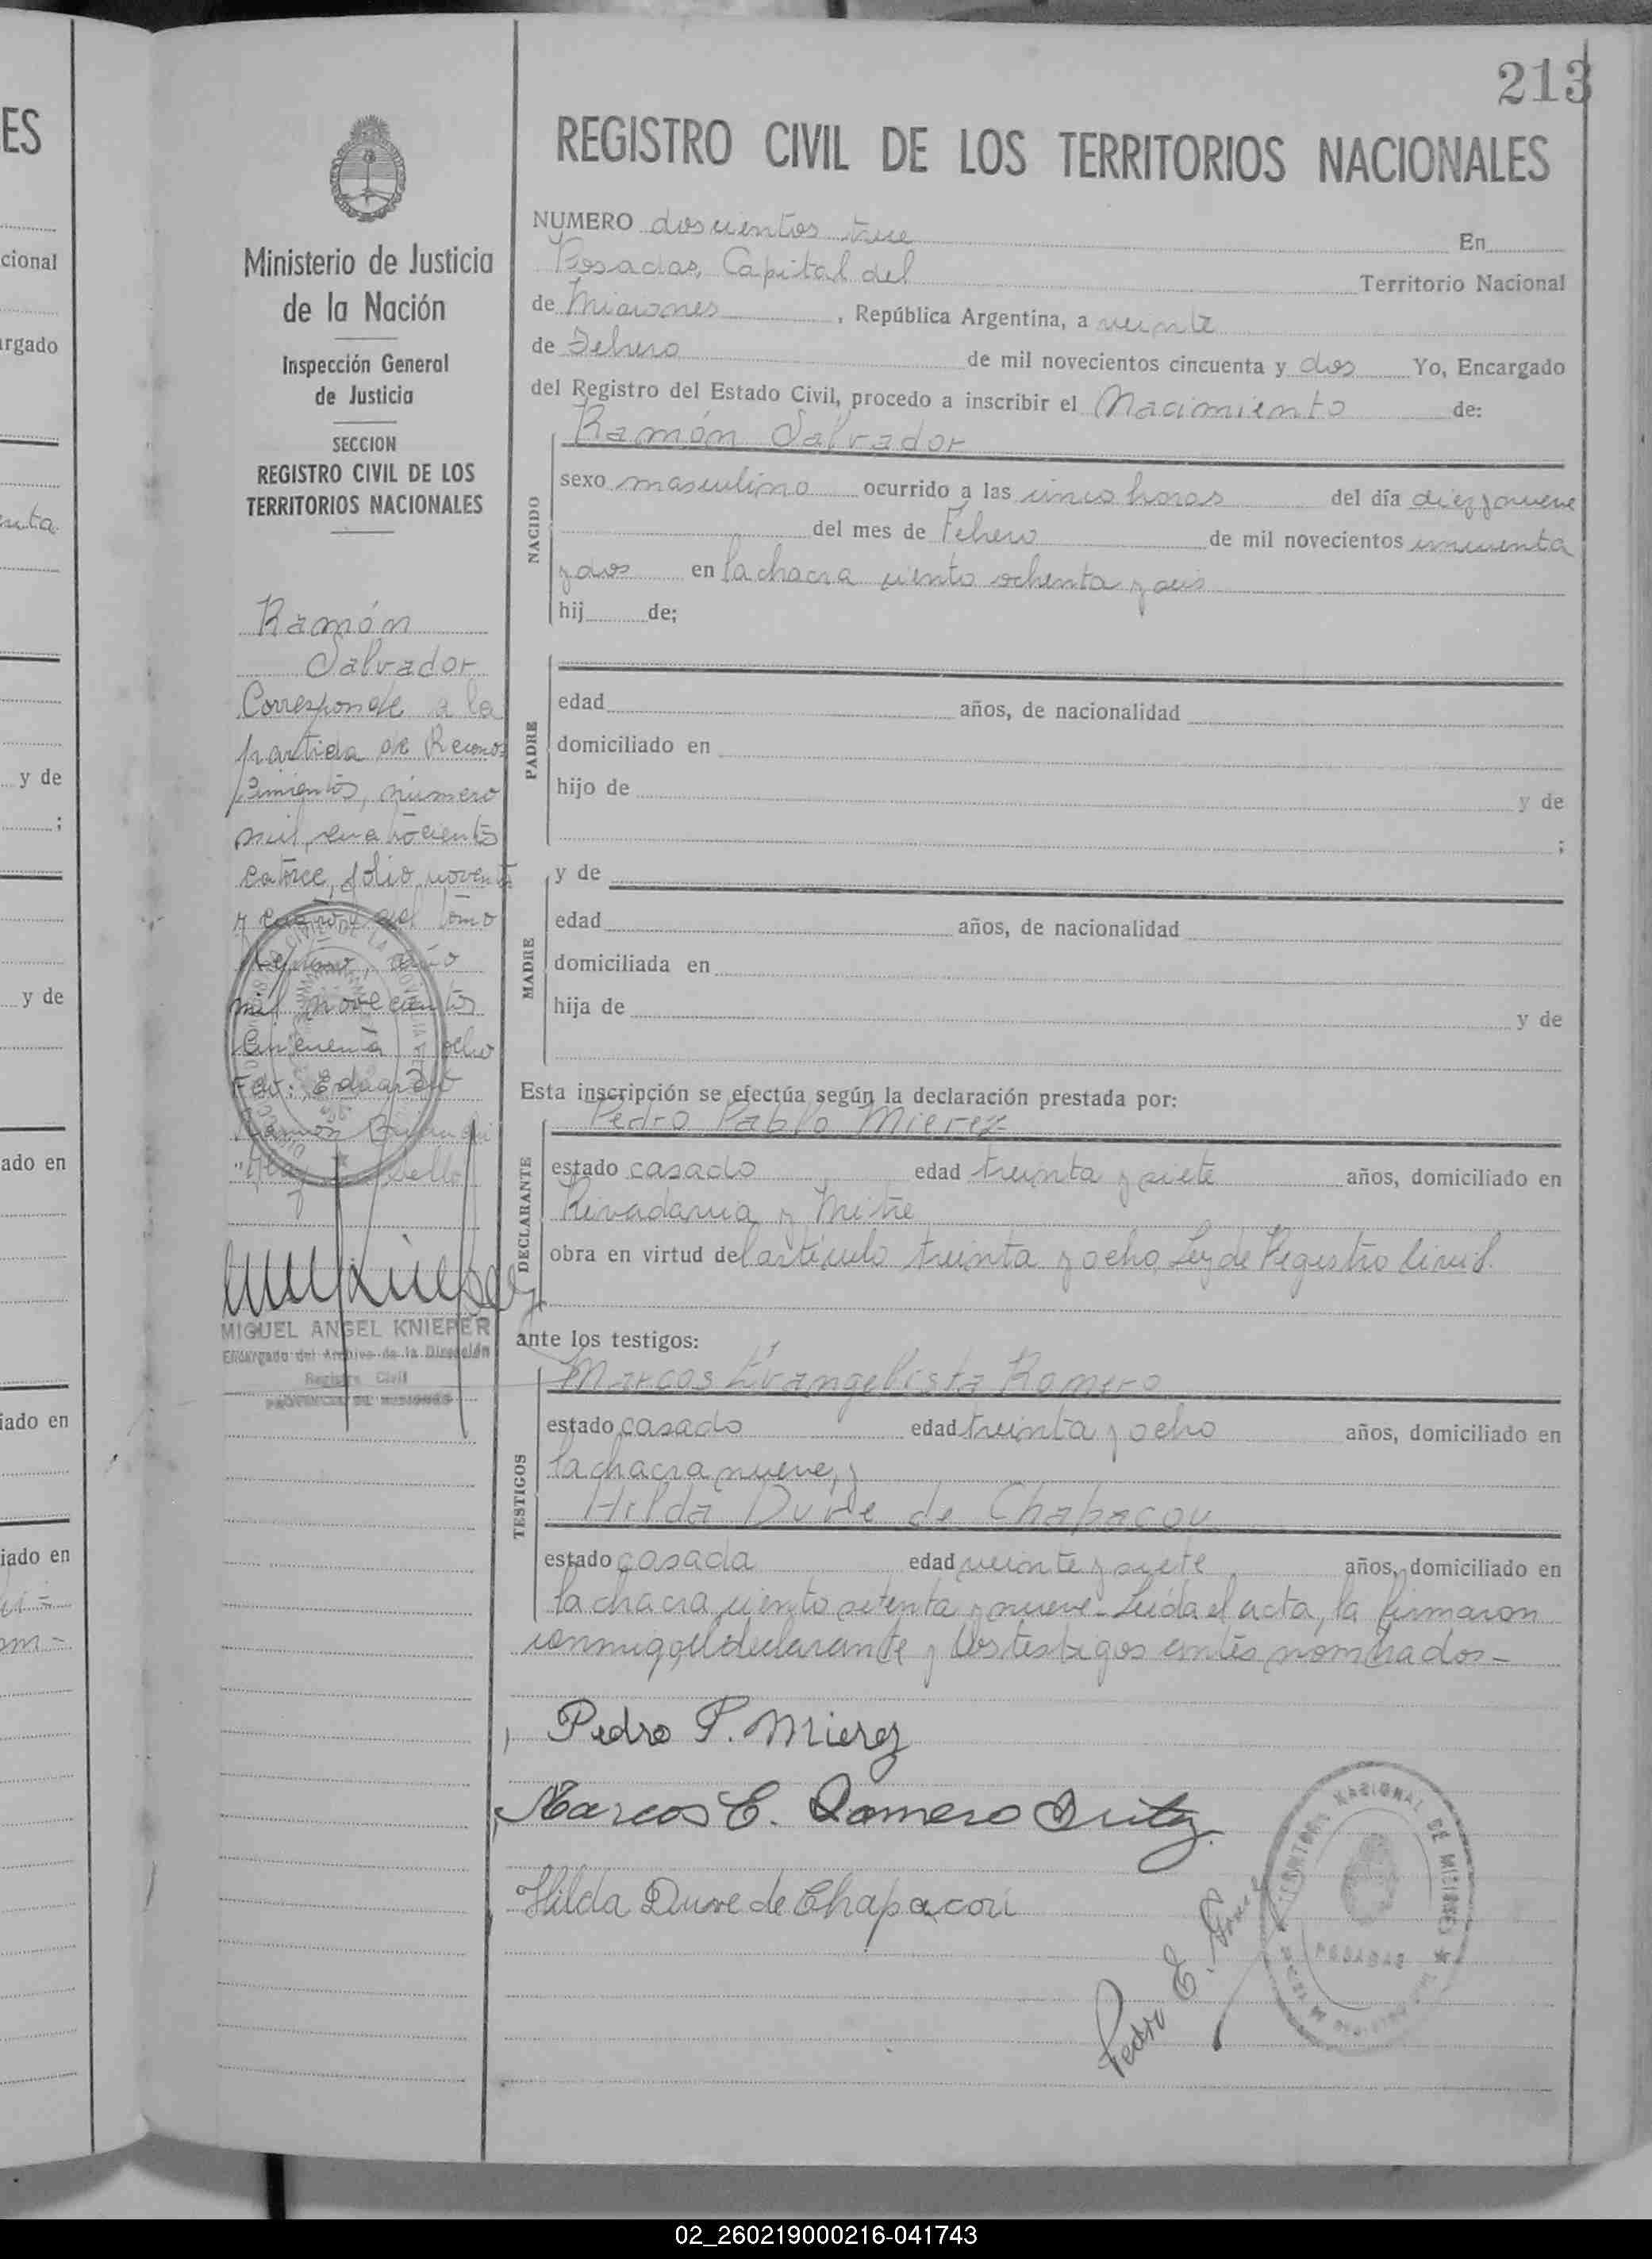 213
REGISTRO CIVIL DE LOS TERRITORIOS NACIONALES
Ministerio de Justicia
de la Nación
Inspección General
de Justicia
SECCION
REGISTRO CIVIL DE LOS
TERRITORIOS NACIONALES
Ramón
Salvador
Corresponde a la
partida de Recono
cimientos, número
mil cuatrocientos
catorce, folio noventa
y cuatro del tomo
año
mil novecientos
cincuenta y ocho
Fdo: Eduardo
Ramón
Sello
MIGUEL ANGEL KNIEPER
Encargado del Archivo de la Dirección
Registro Civil
PROVINCIA DE MISIONES
NUMERO doscientos trece En
Posadas, Capital del Territorio Nacional
de Misiones, República Argentina, a veinte
de Febrero de mil novecientos cincuenta y dos Yo, Encargado
del Registro del Estado Civil, procedo a inscribir el Nacimiento de:
Ramón Salvador
NACIDO
sexo masculino ocurrido a las cinco horas del día diez y nueve
del mes de Febrero de mil novecientos cincuenta
y dos en la chacra ciento ochenta y seis
hij de;
PADRE
edad años, de nacionalidad
domiciliado en
hijo de y de
;
MADRE
y de
edad años, de nacionalidad
domiciliada en
hija de y de
Esta inscripción se efectúa según la declaración prestada por:
Pedro Pablo Mierez
DECLARANTE
estado casado edad treinta y siete años, domiciliado en
Rivadavia y Mitre
obra en virtud del artículo treinta y ocho, Ley de Registro Civil.
ante los testigos:
Marcos Evangelista Romero
TESTIGOS
estado casado edad treinta y ocho años, domiciliado en
la chacra nueve, y
Hilda Duve de Chapacou
estado casada edad veinte y siete años, domiciliado en
la chacra ciento setenta y nueve - Leída el acta, la firmaron
conmigo, el declarante y los testigos antes nombrados -
Pedro P. Mierez
Marcos E. Romero
Hilda Duve de Chapacou
Pedro E.
TERRITORIO NACIONAL DE MISIONES
POSADAS
ES
cional
argado
enta
y de
;
y de
ado en
iado en
iado en
02_260219000216-041743